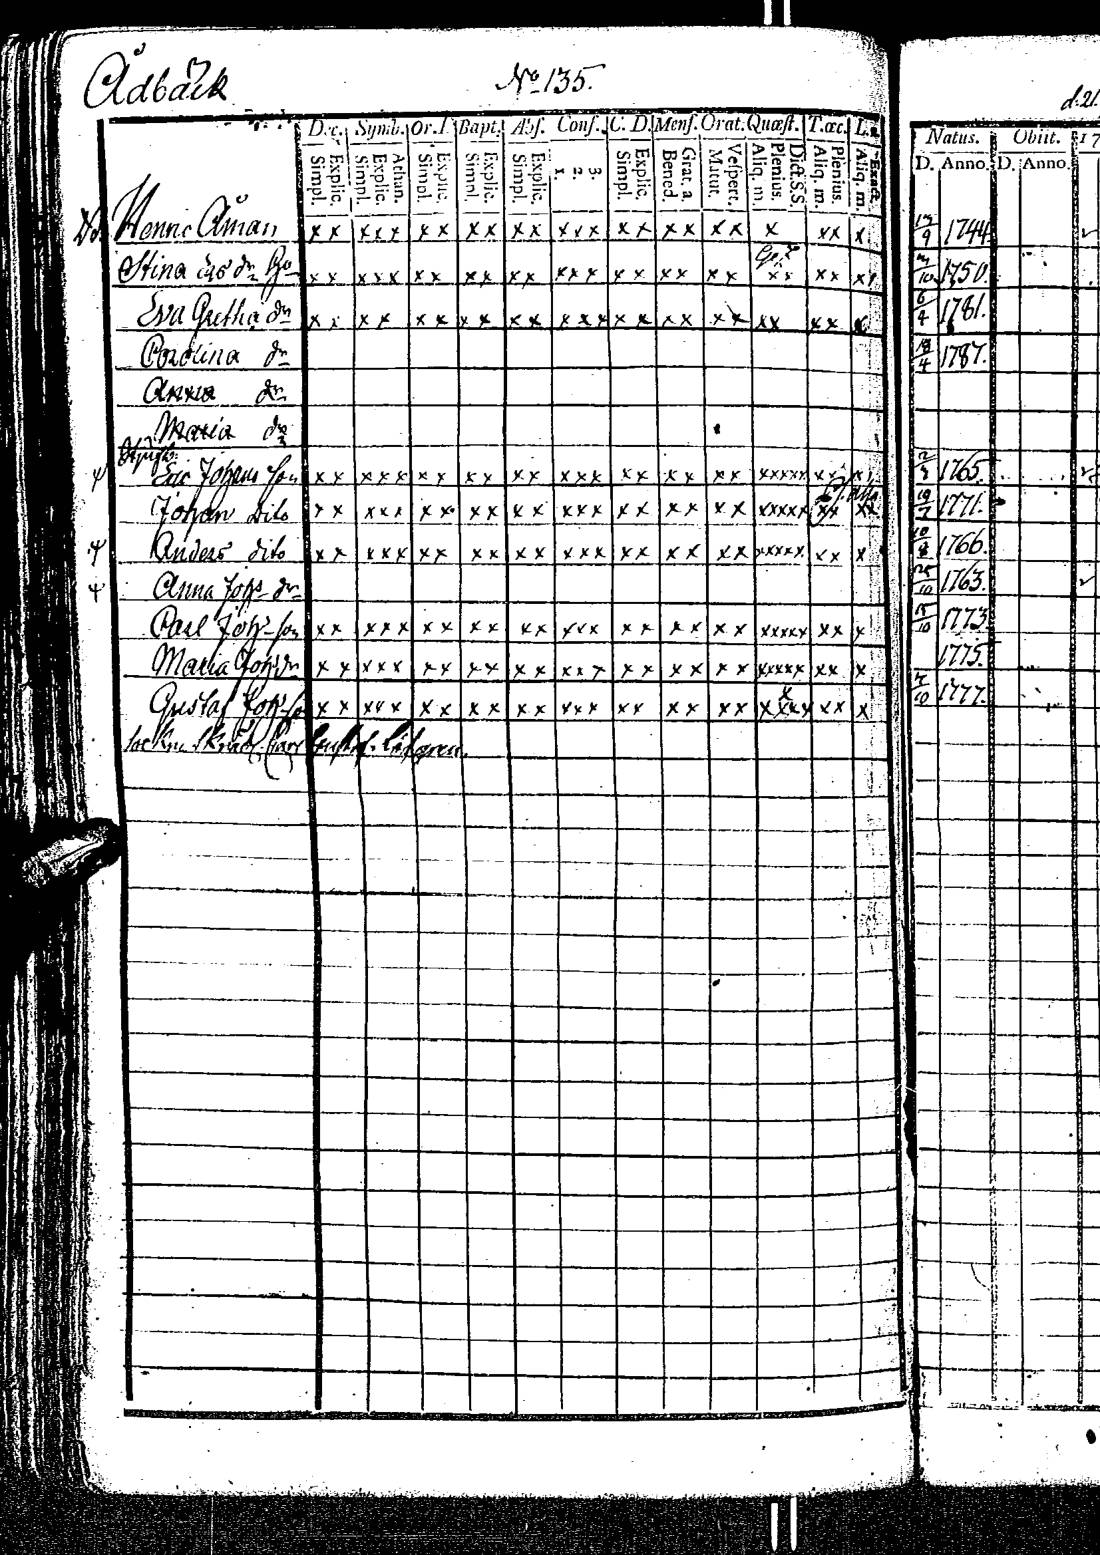 Ådbäck
No 135.
d. 21.
Dec. Symb. Or. D. Bapt. Abs. Conf. C. D. Mens. Orat. Quæst. T. œc.
Natus. Obiit. 17
Simpl. Explic. Simpl. Explic. Athan. Simpl. Explic. Simpl. Explic. Simpl. Explic. 1. 2. 3. Simpl. Explic. Bened. Grat. a. Matut. Vespert. Aliq. m. Plenius. Dict. S. S. Aliq. m. Plenius. Aliq. m. Exact.
D. Anno. D. Anno.
Henric Åman x x x x x x x x x x x x x x x x x x x x x x x x x 13/9 1744
Stina dr x x x x x x x x x x x x x x x x x x x x x x x x x x 10 1750
Eva Gretha dr x x x x x x x x x x x x x x x x x x x x x x x x 6/4 1781.
Carolina dr 4 1787.
Anna dr
Maria dr
Eric Johans son x x x x x x x x x x x x x x x x x x x x x x x x x x x 1765.
Johan dito x x x x x x x x x x x x x x x x x x x x x x x x x x x x x 1771.
Anders dito x x x x x x x x x x x x x x x x x x x x x x x x x x x x 1766.
Anna Johs dr 10 1763.
Carl Johs son x x x x x x x x x x x x x x x x x x x x x x x x x x x x 15/10 1773
Maria Johs dr x x x x x x x x x x x x x x x x x x x x x x x x x x x x 1775.
Gustaf Johs x x x x x x x x x x x x x x x x x x x x x x x x x x x x 10 1777.